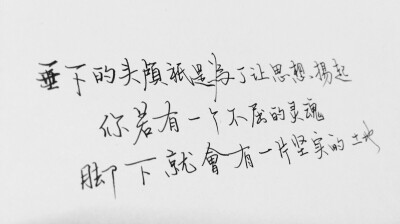 垂下的头颅祇是為了让思想揚起
你若有一个不屈的灵魂
脚下就會有一片坚实的土地